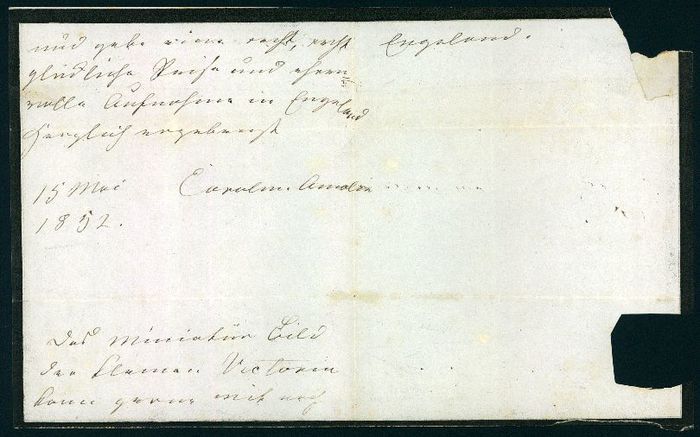 und gebe eine recht, recht
glückliche Reise und ehren
volle Aufnahme in Engeland
Herzlich ergebenst
15 Mai Carolin. Amalie
1852.
Das Miniatür Bild
der kleinen Victoria
kann gerne mit nach
Engeland.